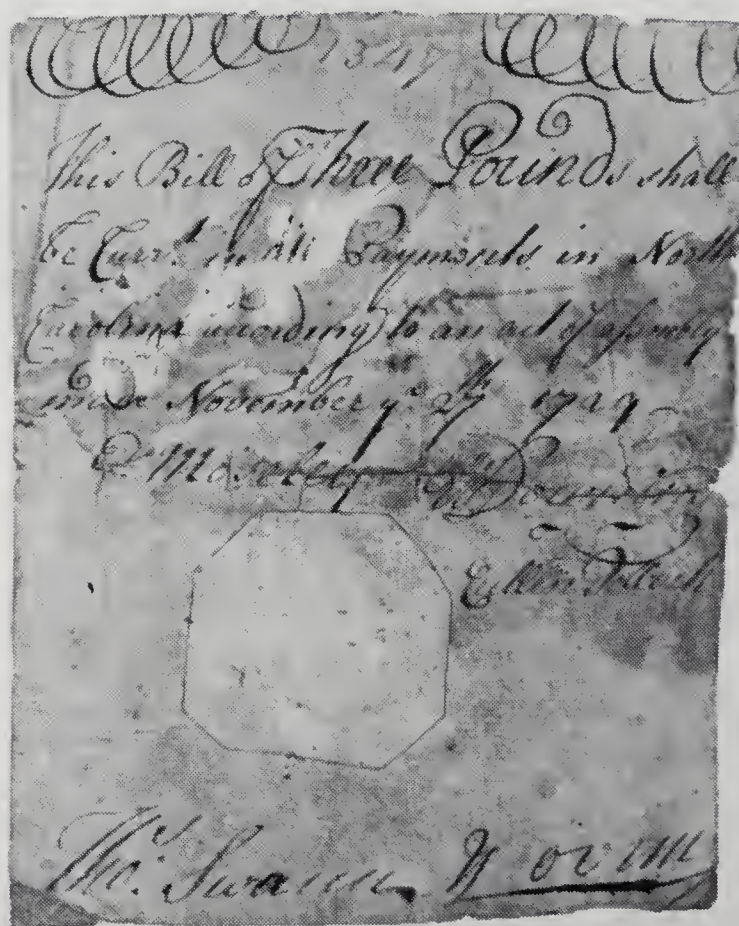 1347
This Bill of Three Pounds shall
be Curr.t in all Payments in North
Carolina according to an act of assembly
made November y.e 27th 1729
E Moseley W Downing
Tho.s Swann